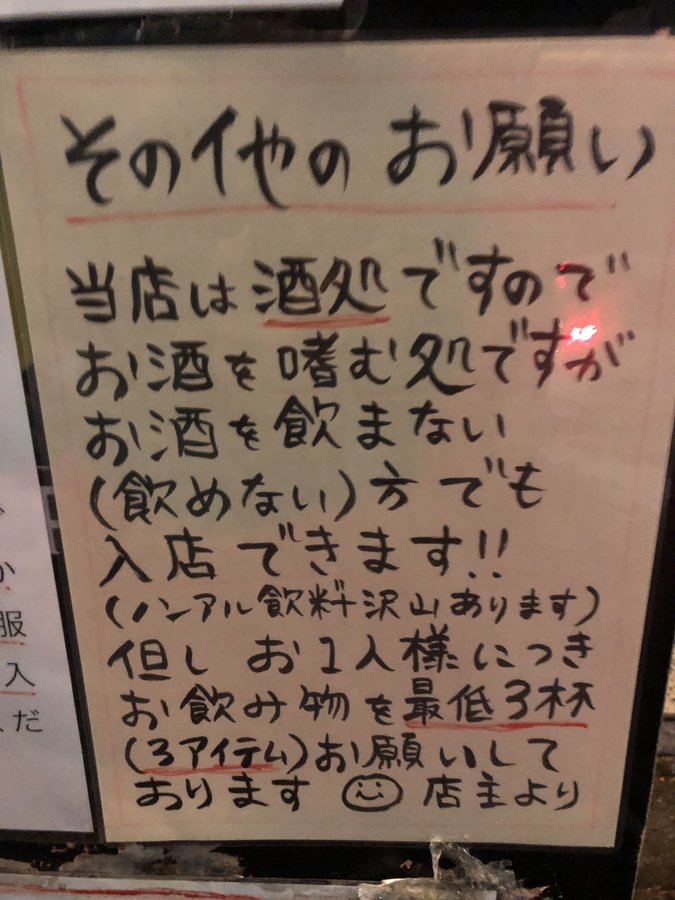 その他のお願い
当店は酒処ですので
お酒を嗜む処ですが
お酒を飲まない
(飲めない)方でも
入店できます!!
(ノンアル飲料沢山あります)
但しお1人様につき
お飲み物を最低3杯
(3アイテム)お願いして
おります 店主より
か
服
入
だ